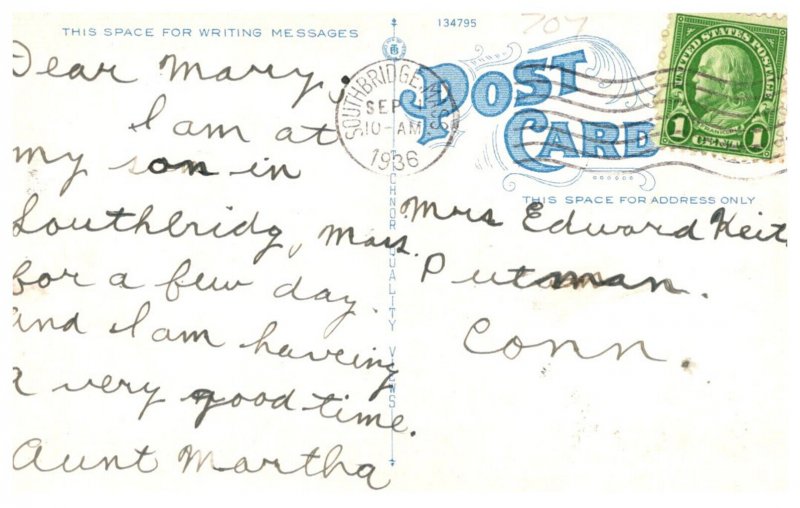 THIS SPACE FOR WRITING MESSAGES
134795
707
Dear Mary,
I am at
my son in
Southbridg, Mass.
for a few day.
and I am haveing
a very good time.
Aunt Martha
SOUTHBRIDGE, MASS.
SEP
10-AM
1936
POST
CARD
UNITED STATES POSTAGE
FRANKLIN
1 CENT 1
THIS SPACE FOR ADDRESS ONLY
Mrs Edward Keit
Putman.
Conn.
TICHNOR QUALITY VIEWS